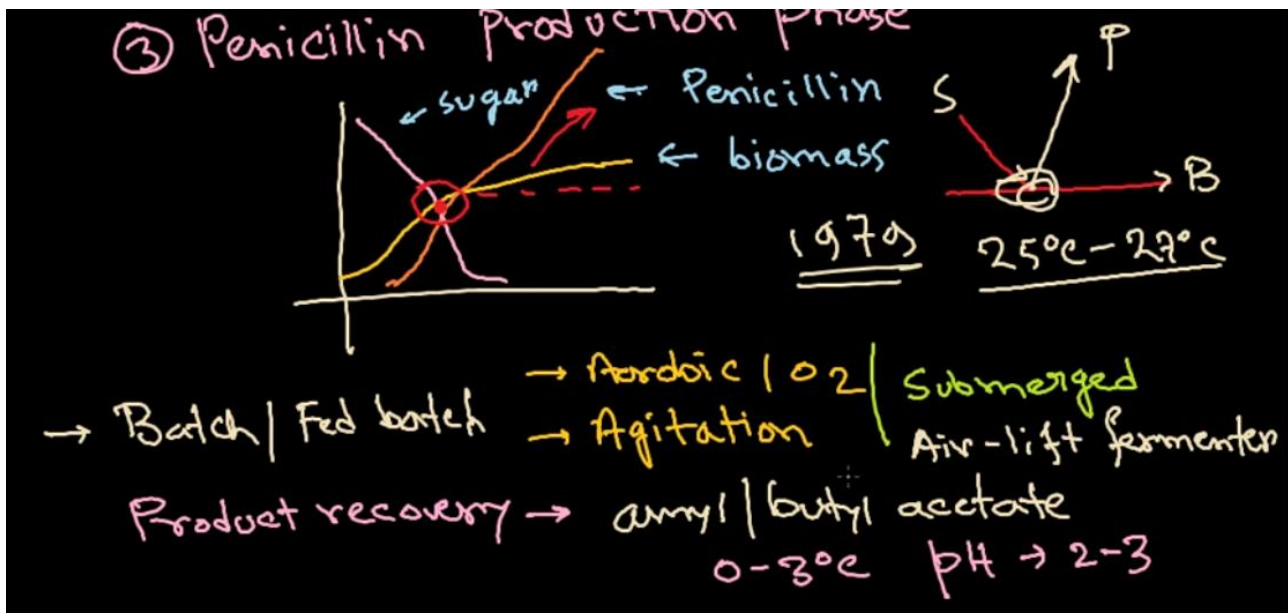 ③ Penicillin Production phase
← sugar
← Penicillin
← biomass
S
P
→ B
1979
25°C - 27°C
→ Batch | Fed batch
→ Aerobic | O2
→ Agitation
Submerged
Air-lift fermenter
Product recovery → amyl | butyl acetate
0-3°C pH → 2-3